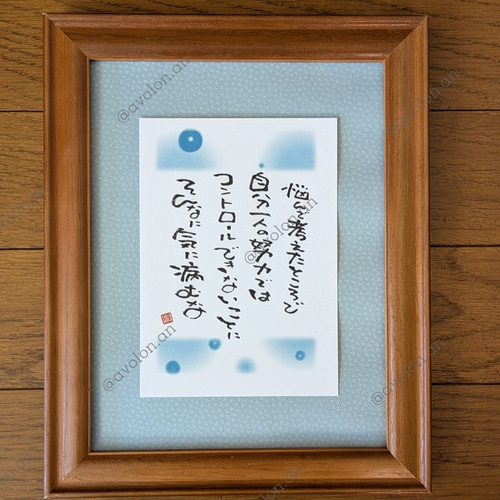 悩んで考えたところで
自分一人の努力では
コントロールできないことに
そんなに気に病むな
@avolon.an
@avolon.an
@avolon.an
@avolon.an
@avolon.an
@avolon.an